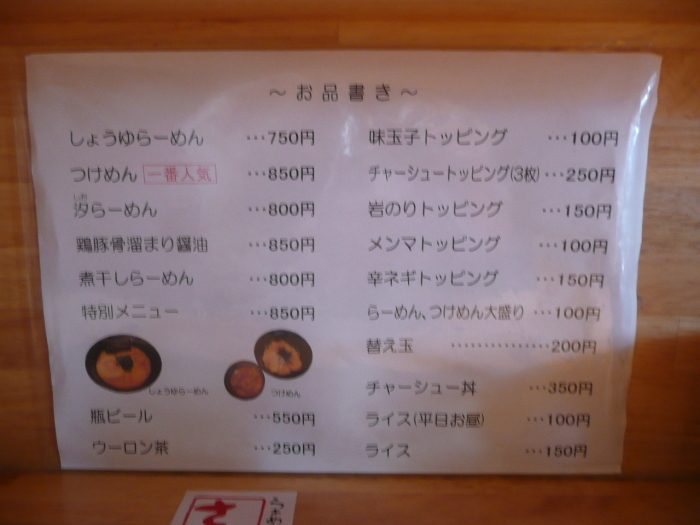 ～お品書き～
しょうゆらーめん ･･･750円
つけめん 一番人気 ･･･850円
しお
汐らーめん ･･･800円
鶏豚骨溜まり醤油 ･･･850円
煮干しらーめん ･･･800円
特別メニュー ･･･850円
しょうゆらーめん
つけめん
瓶ビール ･･･550円
ウーロン茶 ･･･250円
味玉子トッピング ･･･100円
チャーシュートッピング(3枚)･･･250円
岩のりトッピング ･･･150円
メンマトッピング ･･･100円
辛ネギトッピング ･･･150円
らーめん、つけめん大盛り ･･･100円
替え玉 ･･･････････････200円
チャーシュー丼 ･･･350円
ライス(平日お昼) ･･･100円
ライス ･･･150円